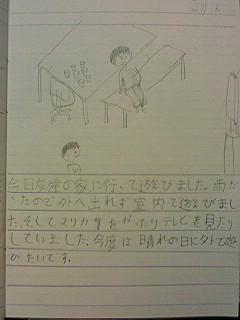 今日友達の家に行って遊びました。雨だ
ったので外へ出れず室内で遊びまし
た。そしてマリカをやったりテレビを見たり
していました。今度は晴れの日に外で遊
びたいです。